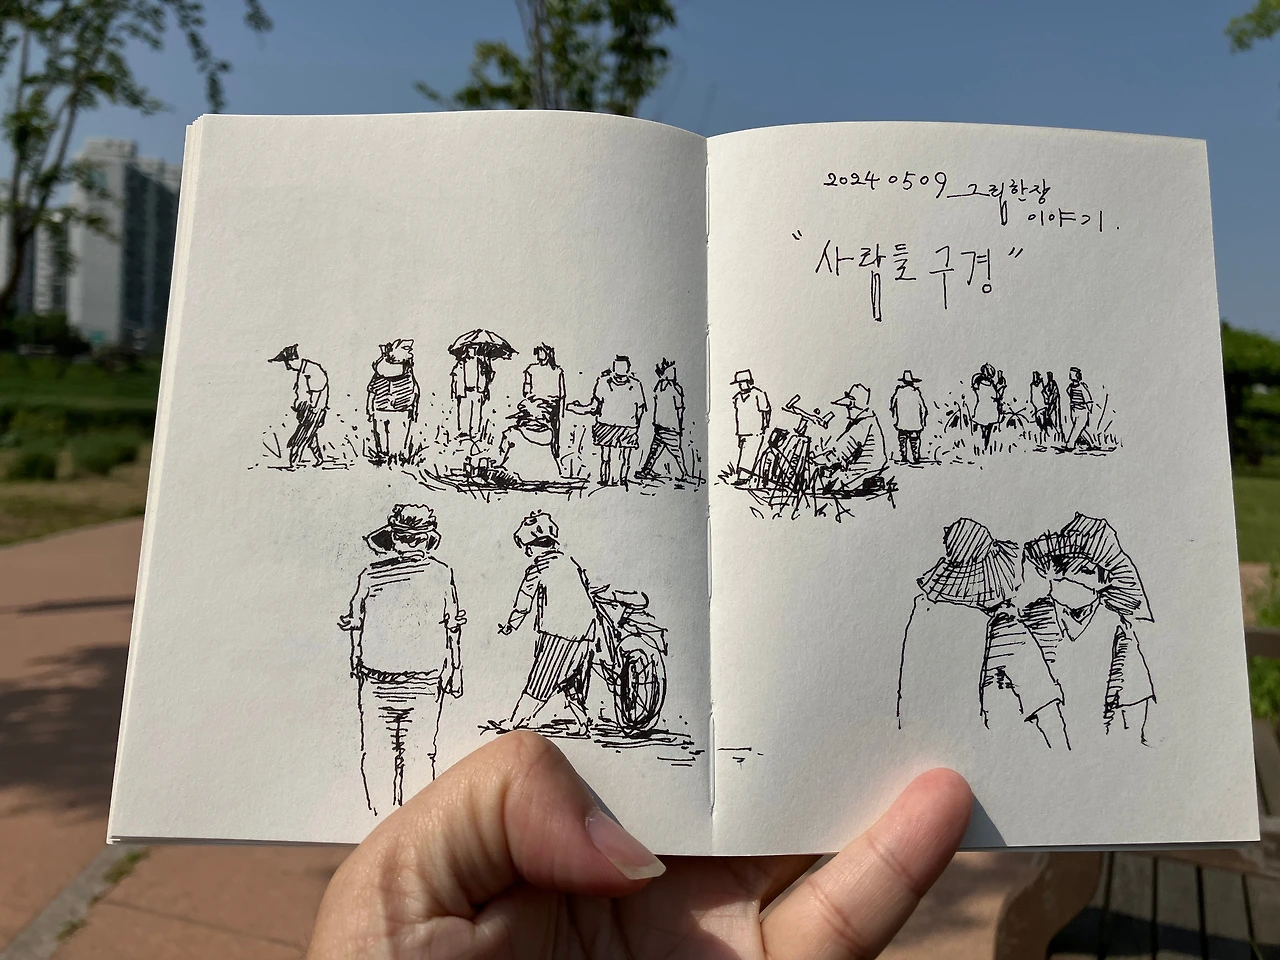 20240509_그림한장
이야기.
"사람들 구경"